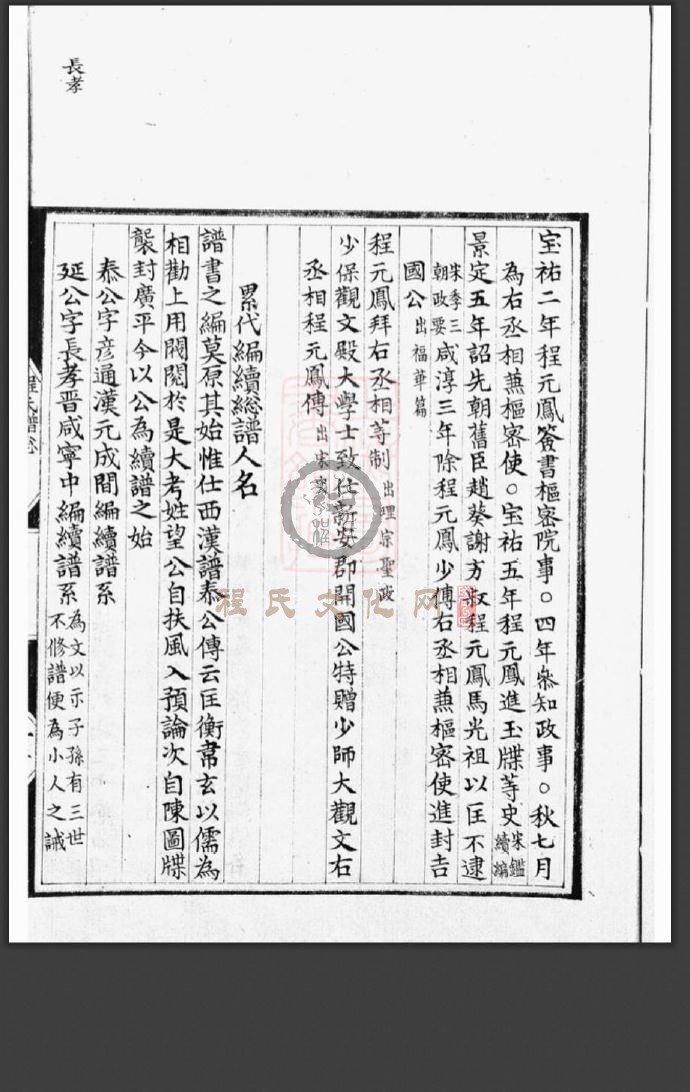 長孝
宝祐二年程元鳳簽書樞密院事○四年叅知政事○秋七月
為右丞相兼樞密使○宝祐五年程元鳳進玉牒等史宋鑑續編
景定五年詔先朝舊臣趙葵謝方叔程元鳳馬光祖以匡不逮
宋季三朝政要咸淳三年除程元鳳少傅右丞相兼樞密使進封吉
國公出福華篇
程元鳳拜右丞相等制出理宗聖政
少保觀文殿大學士致仕新安郡開國公特贈少師大觀文右
丞相程元鳳傳出宋史
累代編續總譜人名
譜書之編莫原其始惟仕西漢譜泰公傳云匡衡韋玄以儒為
相勸上用閥閱於是大考姓望公自扶風入預論次自陳圖牒
襲封廣平今以公為續譜之始
泰公字彦通漢元成間編續譜系
延公字長孝晋咸寧中編續譜系為文以示子孫有三世不修譜便為小人之誡
程氏譜總
程氏文化网